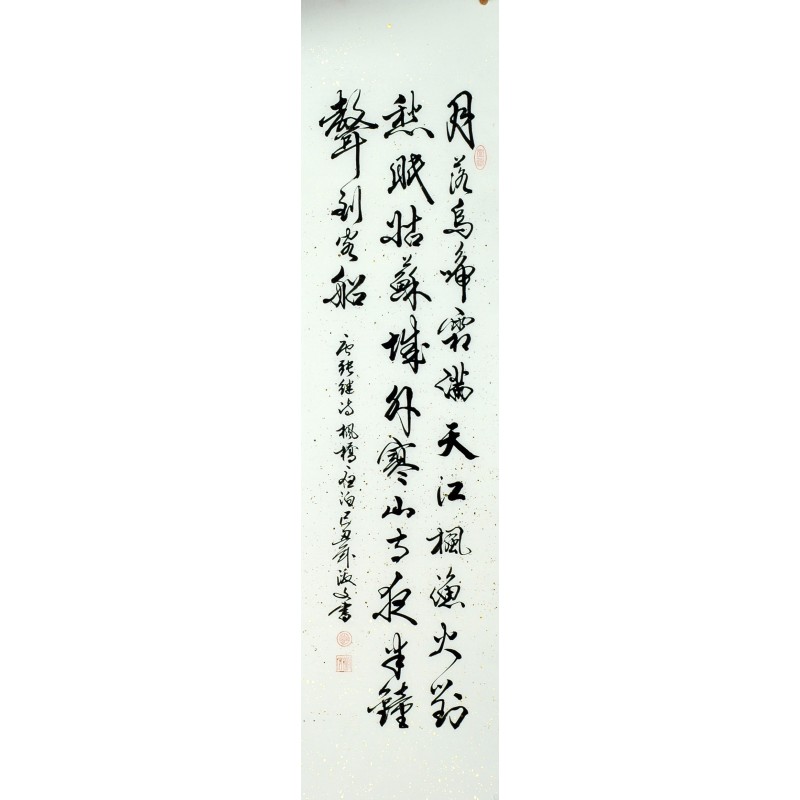 月落烏啼霜滿天江楓漁火對
愁眠姑蘇城外寒山寺夜半鐘
聲到客船
唐張继詩楓橋夜泊己丑年文書